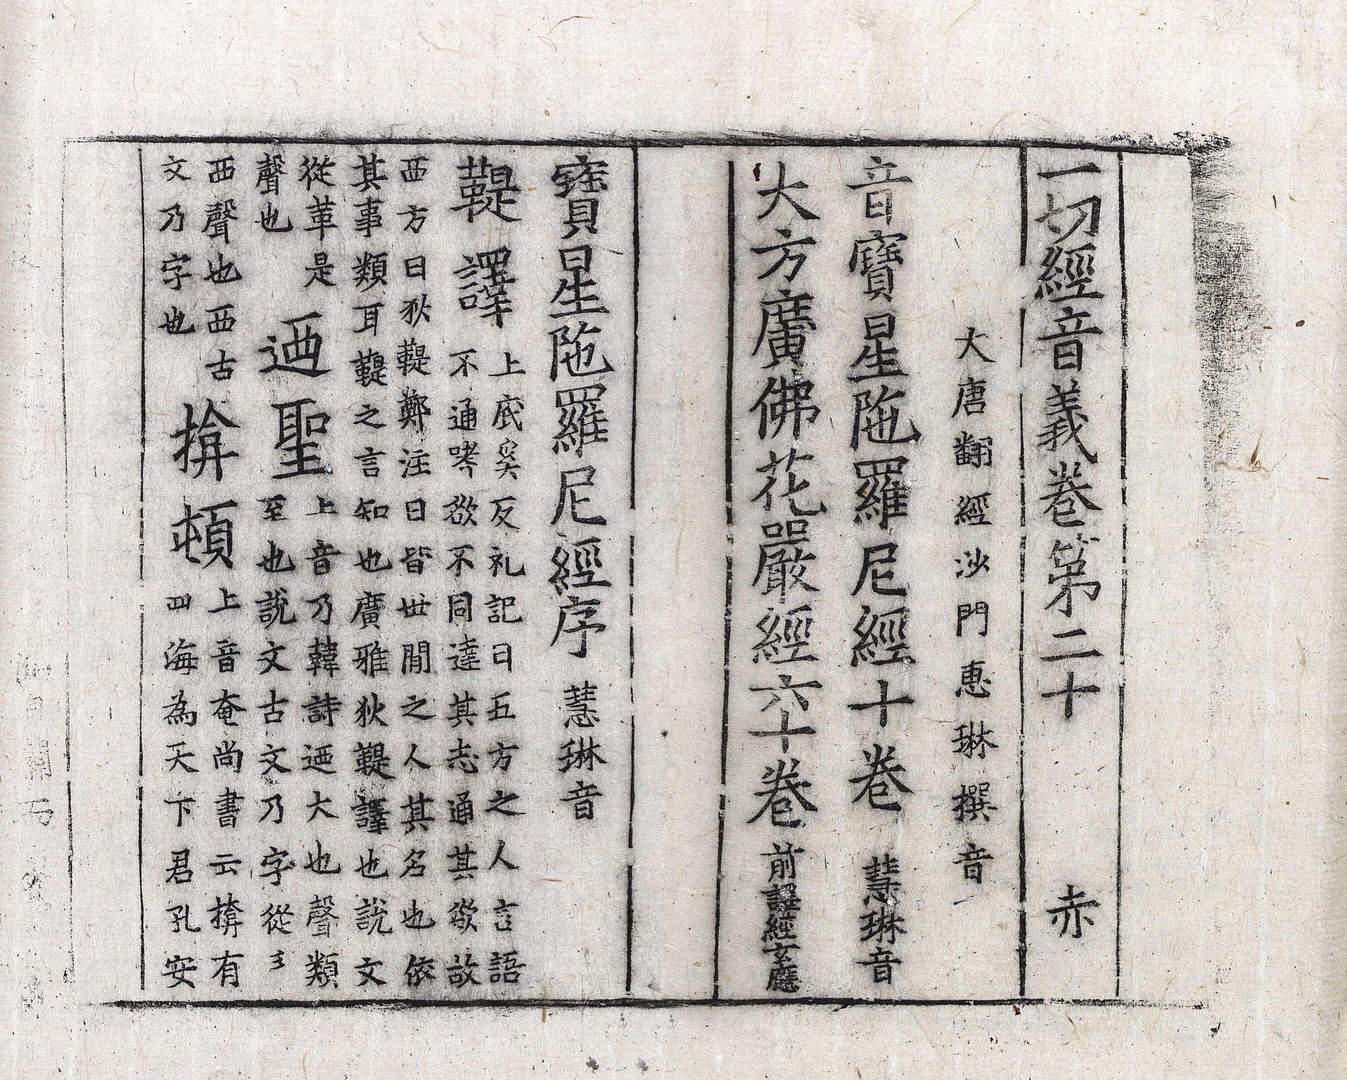 一切經音義卷第二十 赤
大唐翻經沙門惠琳撰音
音寶星陁羅尼經十卷 慧琳音
大方廣佛花嚴經六十卷 前譯經玄應
寶星陁羅尼經序 慧琳音
鞮譯 上底奚反礼記曰五方之人言語
不通嗜欲不同達其志通其欲故
西方曰狄鞮鄭注曰皆世閒之人其名也依
其事類耳鞮之言知也廣雅狄鞮譯也說文
從革是
聲也
迺聖 上音乃韓詩迺大也聲類
至也說文古文乃字從
西聲也西古
文乃字也
揜頓 上音奄尚書云揜有
四海為天下君孔安